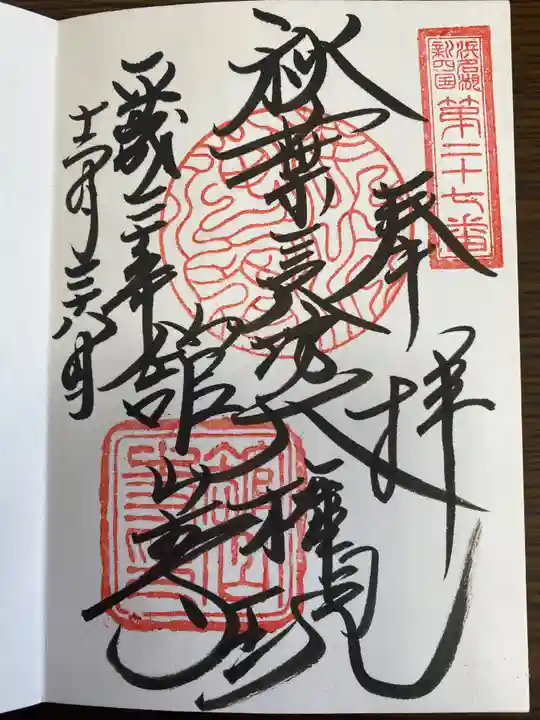 浜名湖
新四国
第二十七番
奉拝
秋葉三尺坊大権現
舘山寺
平成三十年
十二月二十八日